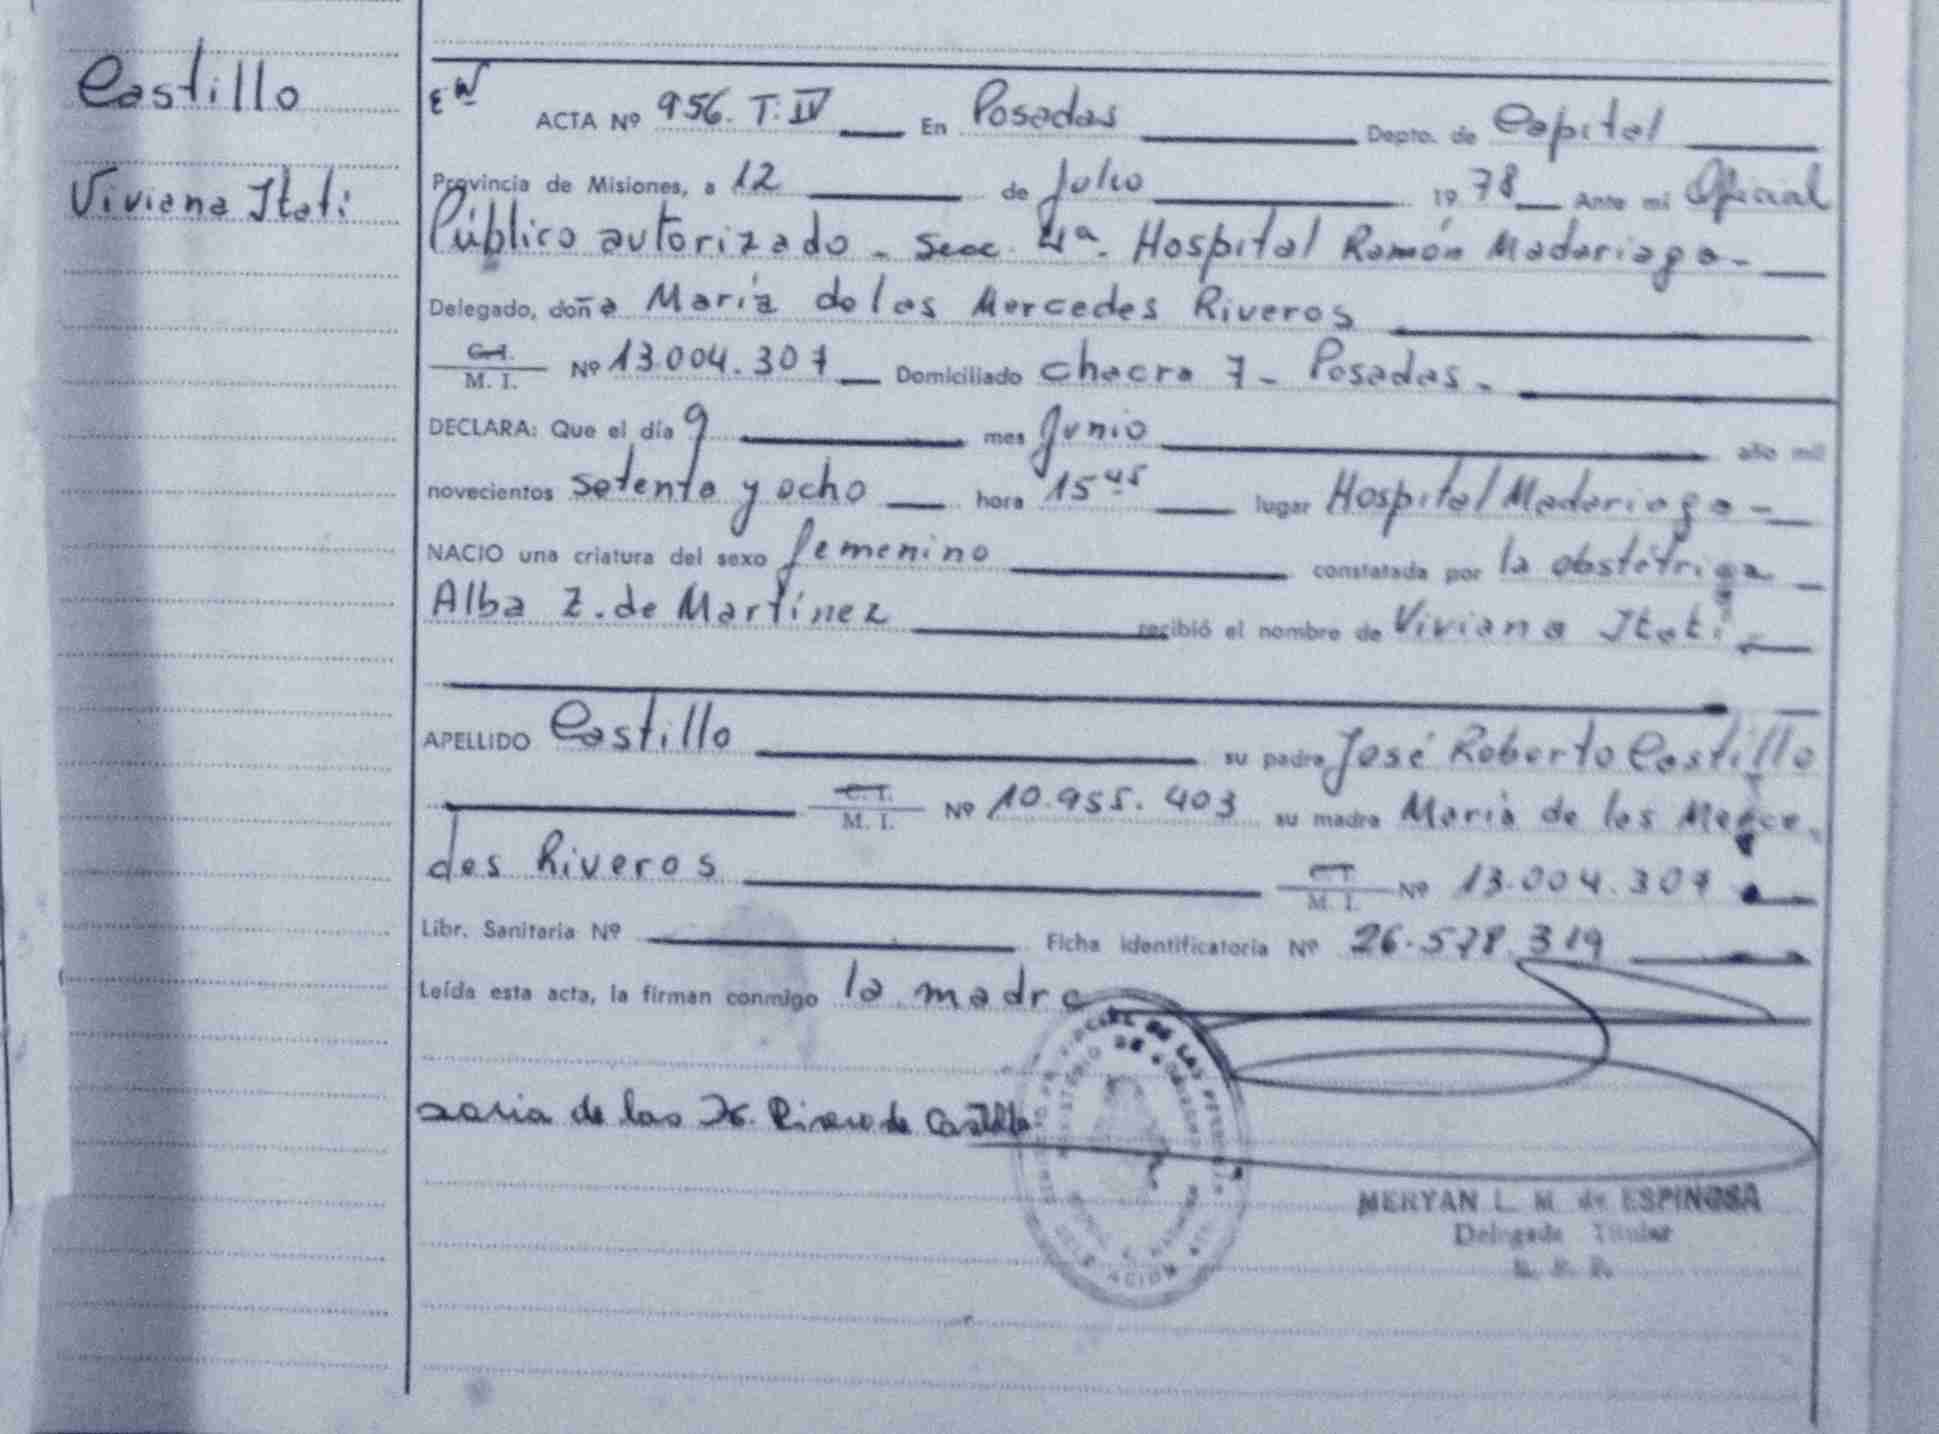 Castillo
Viviana Itatí
ACTA Nº 956. T. IV En Posadas Depto. de Capital
Provincia de Misiones, a 12 de Julio 1978 Ante mi Oficial
Público autorizado - Secc. 4ª. Hospital Ramón Madariaga -
Delegado, doña María de las Mercedes Riveros
C.I.
M. I. Nº 13.004.307 Domiciliado Chacra 7 - Posadas -
DECLARA: Que el día 9 mes Junio año mil
novecientos setenta y ocho hora 15 45 lugar Hospital Madariaga -
NACIO una criatura del sexo femenino constatada por la obstétriga
Alba Z. de Martínez recibió el nombre de Viviana Itatí
APELLIDO Castillo su padre José Roberto Castillo
C.I.
M. I. Nº 10.955.403 su madre María de las Merce-
des Riveros C.I.
M. I. Nº 13.004.307
Libr. Sanitaria Nº Ficha identificatoria Nº 26.578.319
Leída esta acta, la firman conmigo la madre
de las M. Rivero de Castillo
MERYAN L. M. de ESPINOSA
Delegada Titular